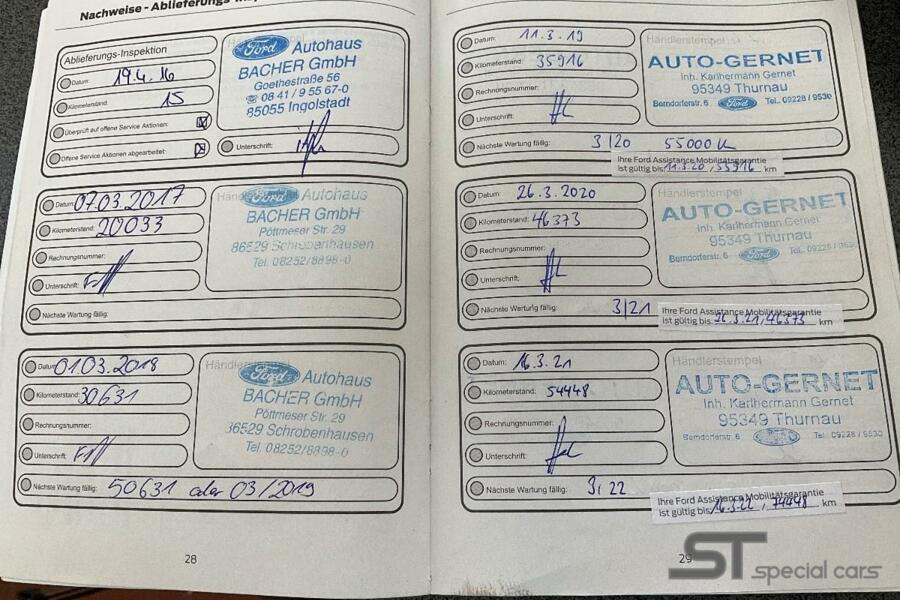 Nachweise - Ablieferungs-Insp
Ablieferungs-Inspektion
Datum: 19.4.16
Kilometerstand: 15
Überprüft auf offene Service Aktionen:
Offene Service Aktionen abgearbeitet:
Händlerstempel
Ford Autohaus
BACHER GmbH
Goethestraße 56
☎ 08 41 / 9 55 67-0
85055 Ingolstadt
Unterschrift:
Datum: 07.03.2017
Kilometerstand: 20033
Rechnungsnummer:
Unterschrift:
Nächste Wartung fällig:
Ford Autohaus
BACHER GmbH
Pöttmeser Str. 29
86529 Schrobenhausen
Tel. 08252/8898-0
Datum: 01.03.2018
Kilometerstand: 30631
Rechnungsnummer:
Unterschrift:
Nächste Wartung fällig: 50631 oder 03/2019
Händlerstempel
Ford Autohaus
BACHER GmbH
Pöttmeser Str. 29
86529 Schrobenhausen
Tel. 08252/8898-0
28
Datum: 11.3.19
Kilometerstand: 35916
Rechnungsnummer:
Unterschrift:
Nächste Wartung fällig: 3/20 55000 K
Händlerstempel
AUTO-GERNET
Inh. Karlhermann Gernet
95349 Thurnau
Berndorferstr. 6 Ford Tel. 09228 / 9530
Ihre Ford Assistance Mobilitätsgarantie
ist gültig bis: 11.3.20 / 55916 km
Datum: 26.3.2020
Kilometerstand: 46373
Rechnungsnummer:
Unterschrift:
Nächste Wartung fällig: 3/21
Händlerstempel
AUTO-GERNET
Inh. Karlhermann Gernet
95349 Thurnau
Berndorferstr. 6 Ford Tel. 09228 / 9530
Ihre Ford Assistance Mobilitätsgarantie
ist gültig bis: 26.3.21 / 46373 km
Datum: 16.3.21
Kilometerstand: 54448
Rechnungsnummer:
Unterschrift:
Nächste Wartung fällig: 3/22
Händlerstempel
AUTO-GERNET
Inh. Karlhermann Gernet
95349 Thurnau
Berndorferstr. 6 Tel. 09228 / 9530
Ihre Ford Assistance Mobilitätsgarantie
ist gültig bis: 16.3.22 / 74448 km
29
ST special cars